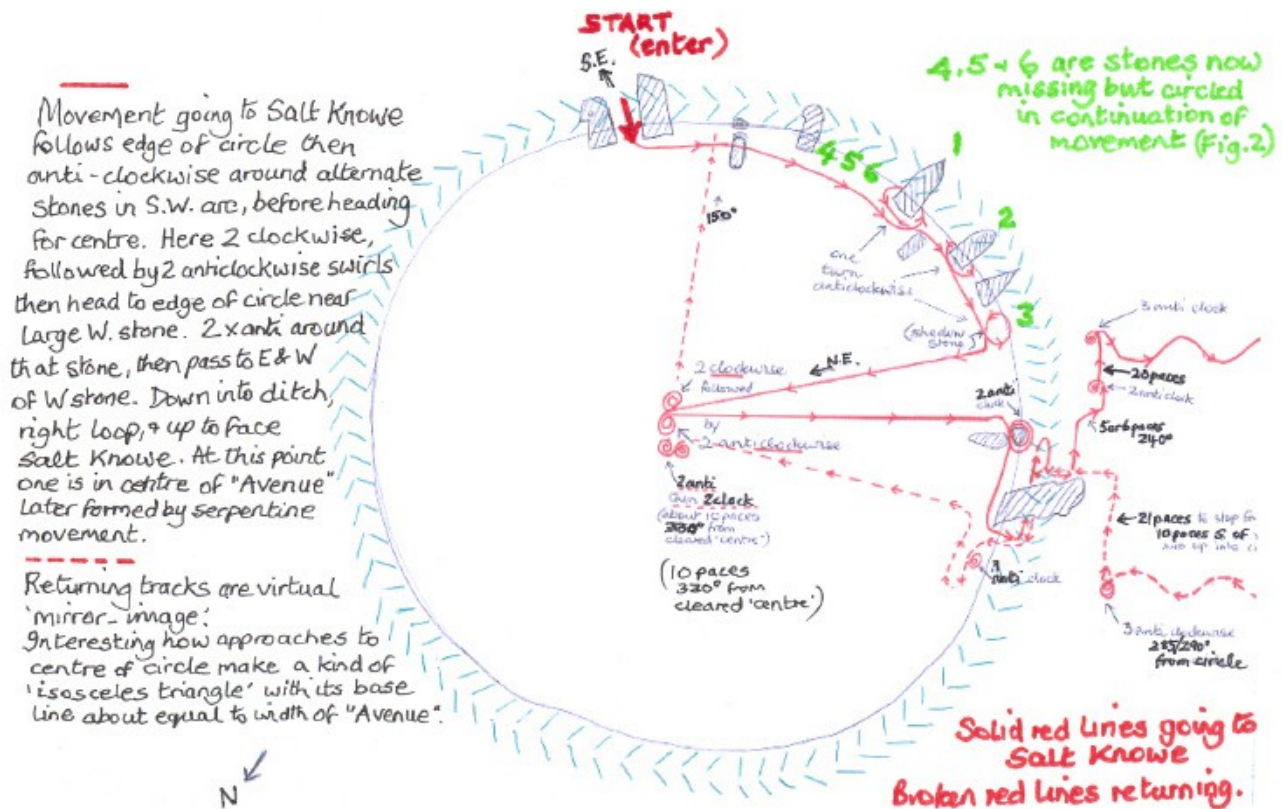 START
(enter)
S.E.
4, 5 + 6 are stones now
missing but circled
in continuation of
movement (Fig.2)
Movement going to Salt Knowe
follows edge of circle then
anti-clockwise around alternate
stones in S.W. arc, before heading
for centre. Here 2 clockwise,
followed by 2 anticlockwise swirls
then head to edge of circle near
large W. stone. 2 x anti around
that stone, then pass to E & W
of W stone. Down into ditch,
right loop, & up to face
Salt Knowe. At this point
one is in centre of "Avenue"
later formed by serpentine
movement.
Returning tracks are virtual
'mirror-image'.
Interesting how approaches to
centre of circle make a kind of
'isosceles triangle' with its base
line about equal to width of "Avenue".
N
4 5 6
1
2
3
150°
one
turn
anticlockwise
(shadow
stone)
N.E.
2 clockwise
followed
by
2 anticlockwise
2 anti
then 2 clock
(about 10 paces
330° from
cleared 'centre')
(10 paces
330° from
cleared 'centre')
2 anti
clock
3 anti clock
20 paces
2 anti clock
5 or 6 paces
240°
21 paces to stop
10 paces S. of
up into
anti clock
3 anti clockwise
285/290°
from circle
Solid red lines going to
Salt Knowe
Broken red lines returning.